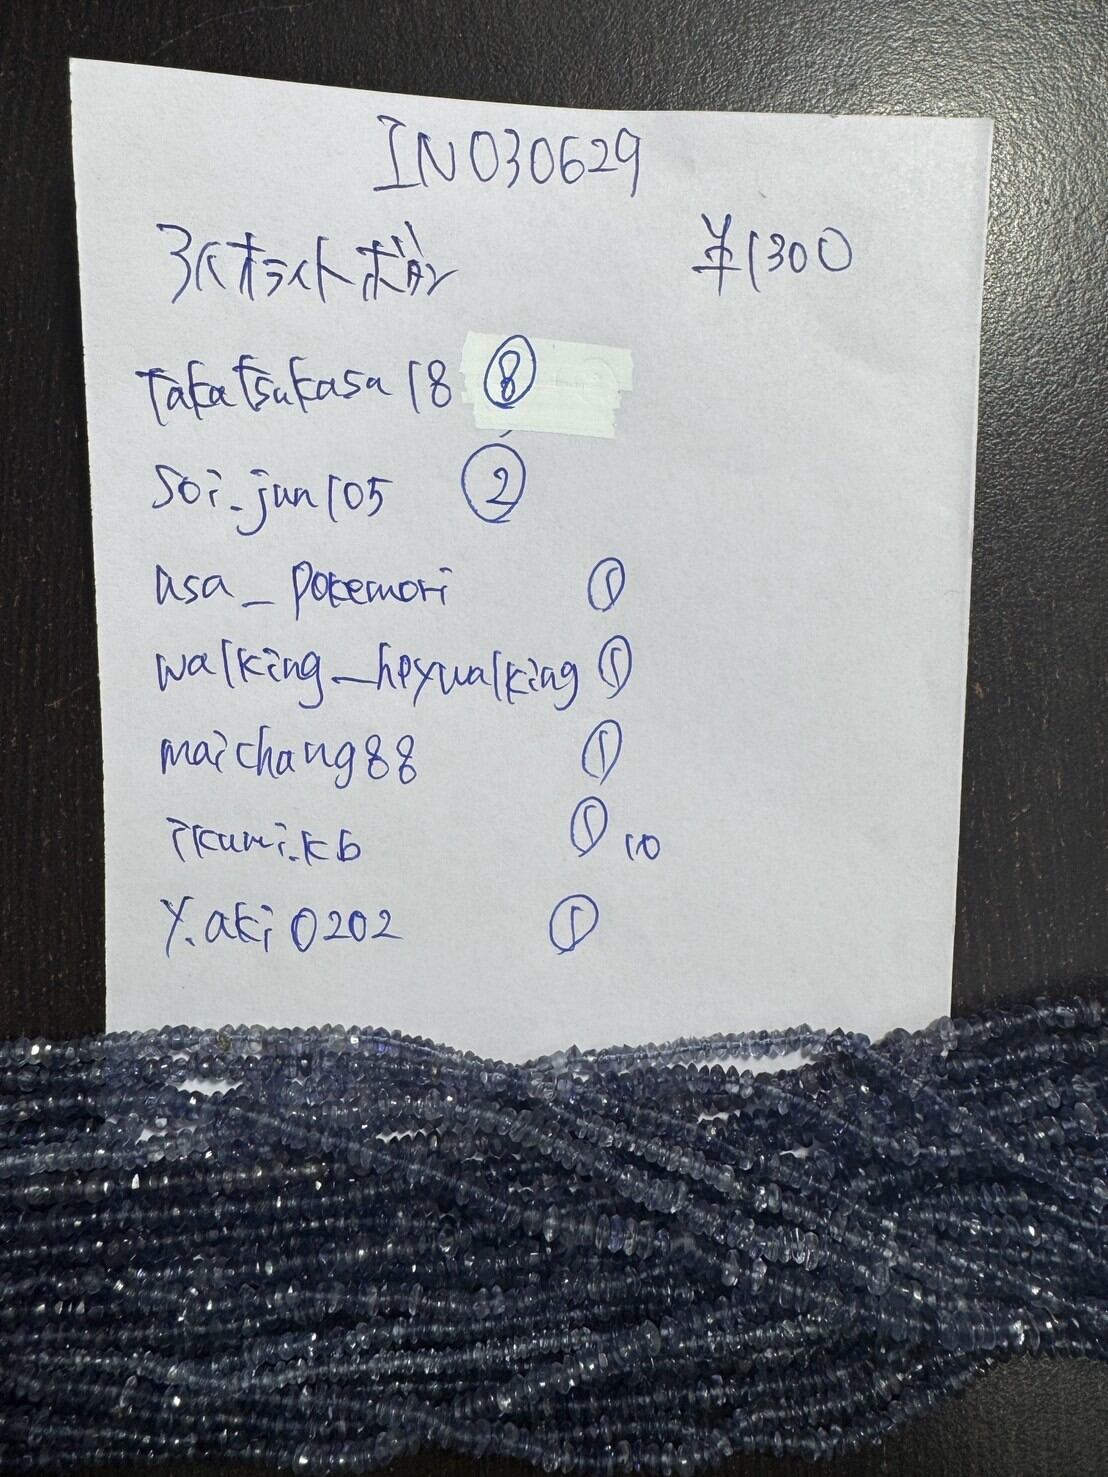 IN030629
アイオライトボタン ¥1300
takatsukasa18 ⑧
soi-jun105 ②
asa_pokemori ①
walking_heywalking ①
maichang88 ①
ikumi.kb ① 10
y.aki0202 ①